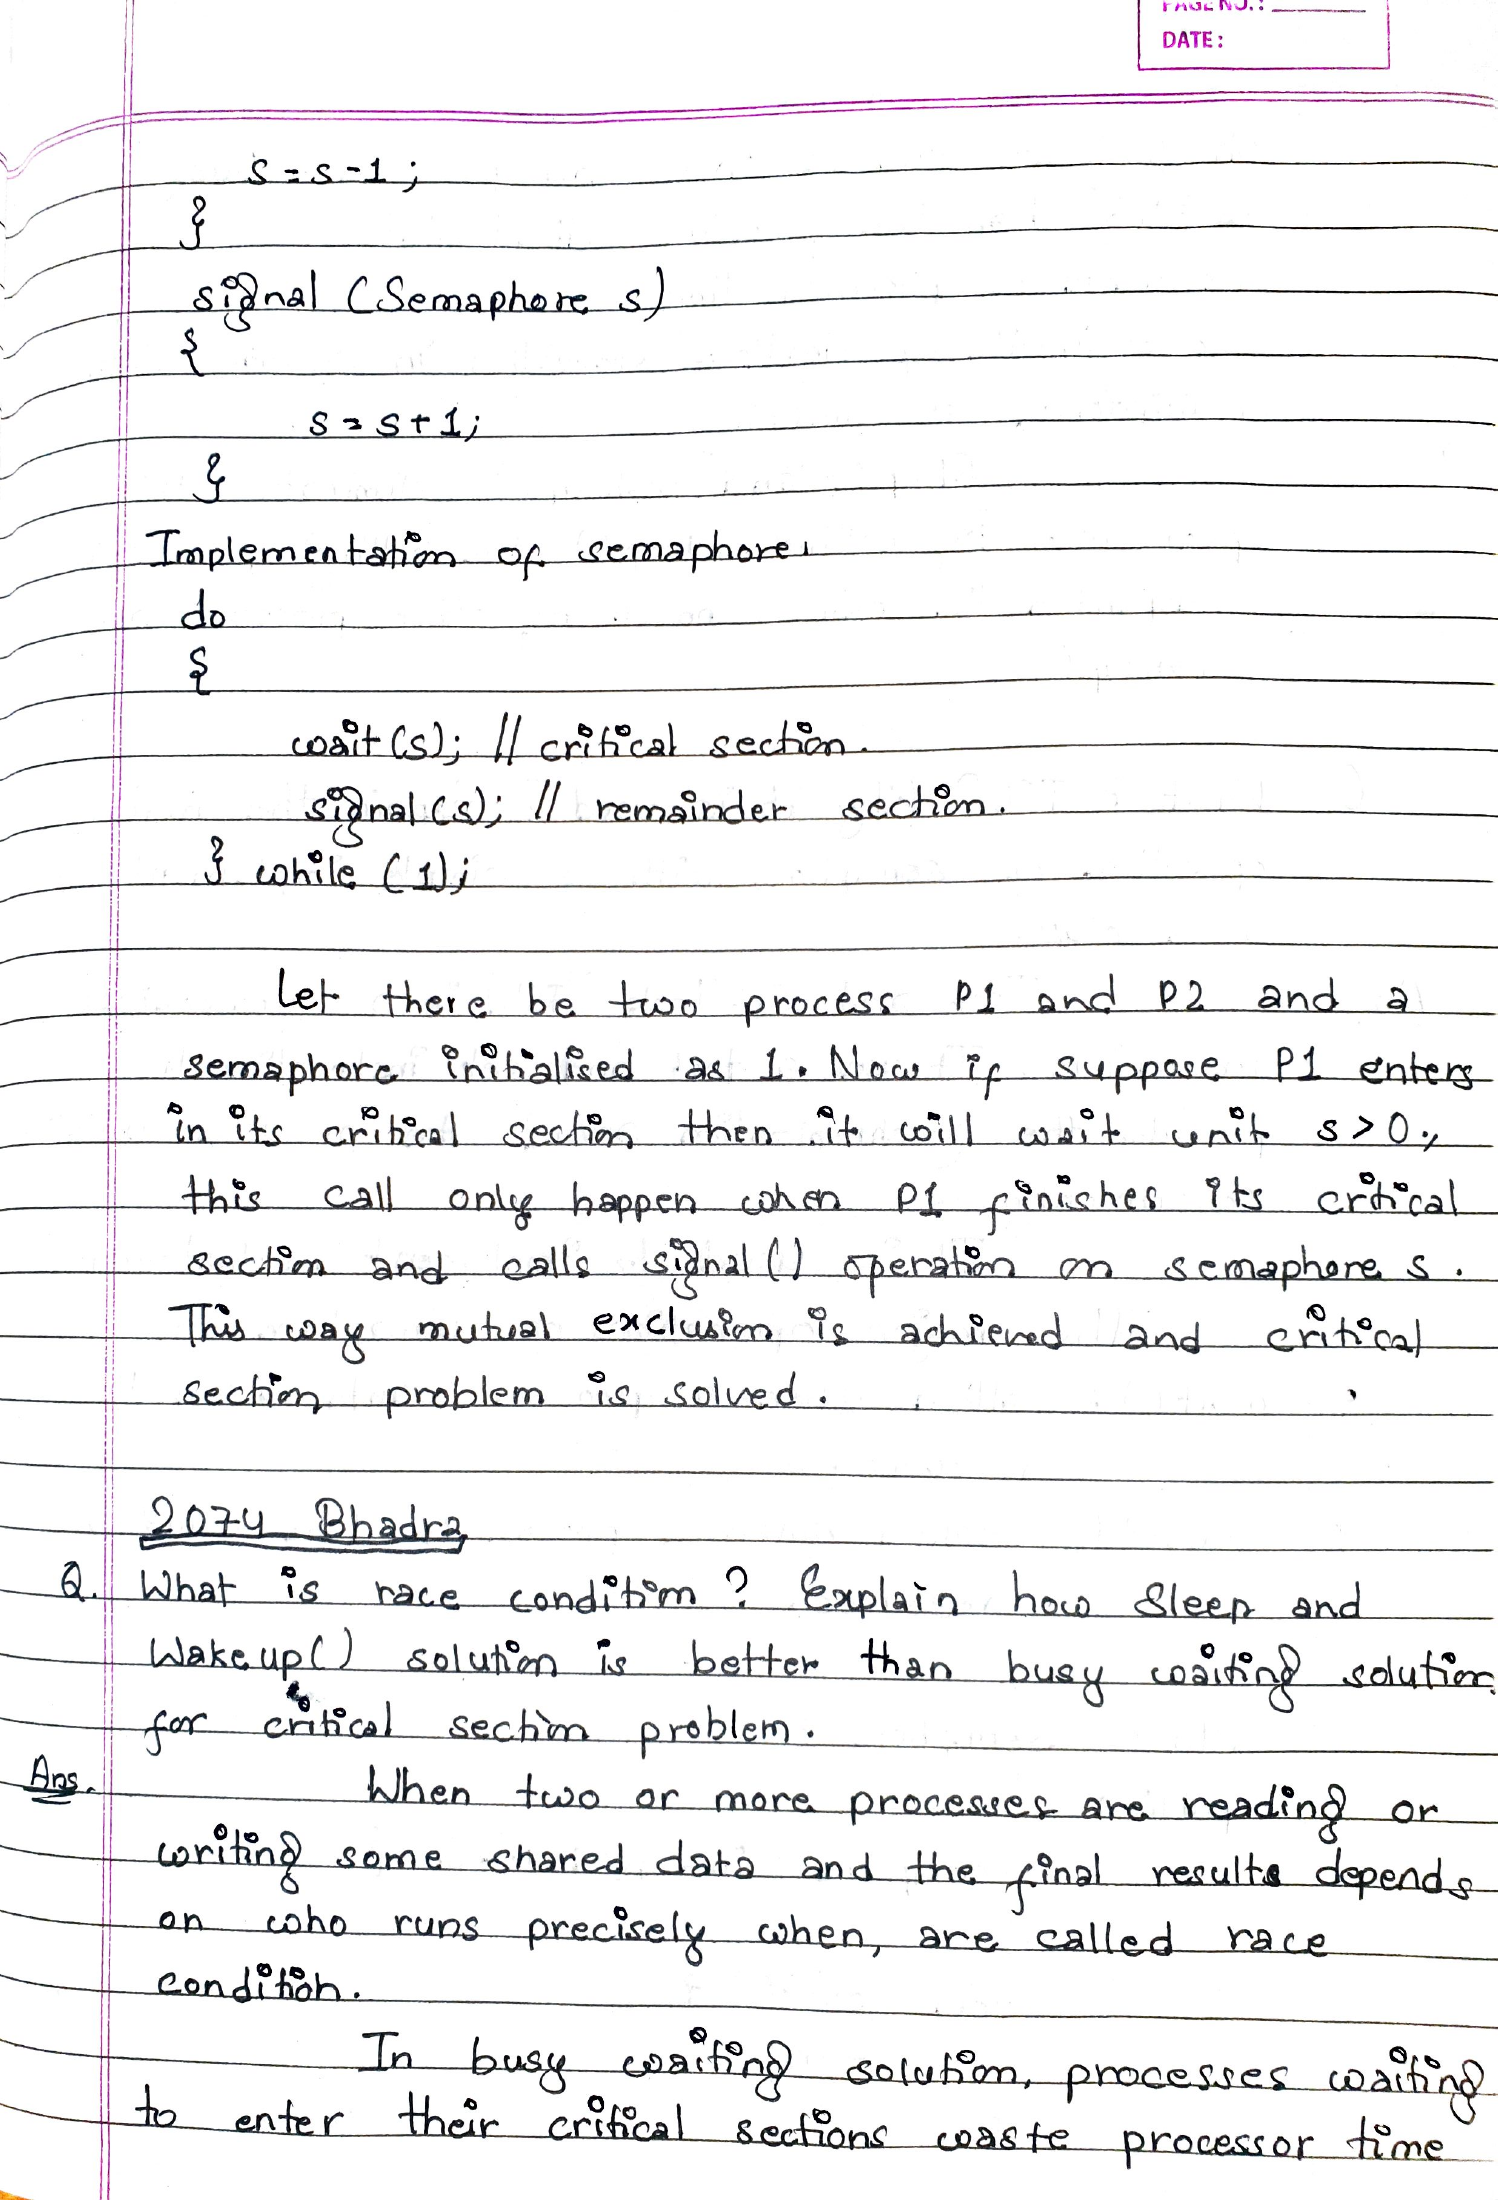 PAGE NO.:
DATE:
s = s - 1 ;
}
signal (Semaphore s)
{
s = s + 1;
}
Implementation of semaphore
do
{
wait (s); // critical section.
signal (s); // remainder section.
} while (1);
Let there be two process P1 and P2 and a
semaphore initialised as 1. Now if suppose P1 enters
in its critical section then it will wait unit s > 0,
this call only happen when P1 finishes its critical
section and calls signal () operation on semaphore s.
This way mutual exclusion is achieved and critical
section problem is solved.
2074 Bhadra
Q. What is race condition? Explain how Sleep and
Wakeup() solution is better than busy waiting solution
for critical section problem.
Ans. When two or more processes are reading or
writing some shared data and the final results depends
on who runs precisely when, are called race
condition.
In busy waiting solution, processes waiting
to enter their critical sections waste processor time